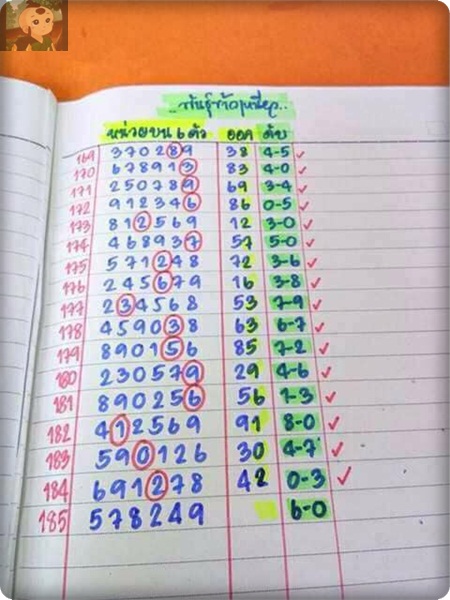 ..พันธุ์ข้าวเหนียว..
หน่วยบน 6 ตัว ออก ดับ
169 370289 38 4-5
170 678913 83 4-0
171 250789 69 3-4
172 912346 86 0-5
173 812569 12 3-0 ✓
174 468937 57 5-0 ✓
175 571248 72 3-6 ✓
176 245679 16 3-8 ✓
177 234568 53 7-9 ✓
178 459038 63 6-7 ✓
179 890156 85 7-2 ✓
180 230579 29 4-6 ✓
181 890256 56 1-3 ✓
182 412569 91 8-0 ✓
183 590126 30 4-7 ✓
184 691278 42 0-3 ✓
185 578249 6-0